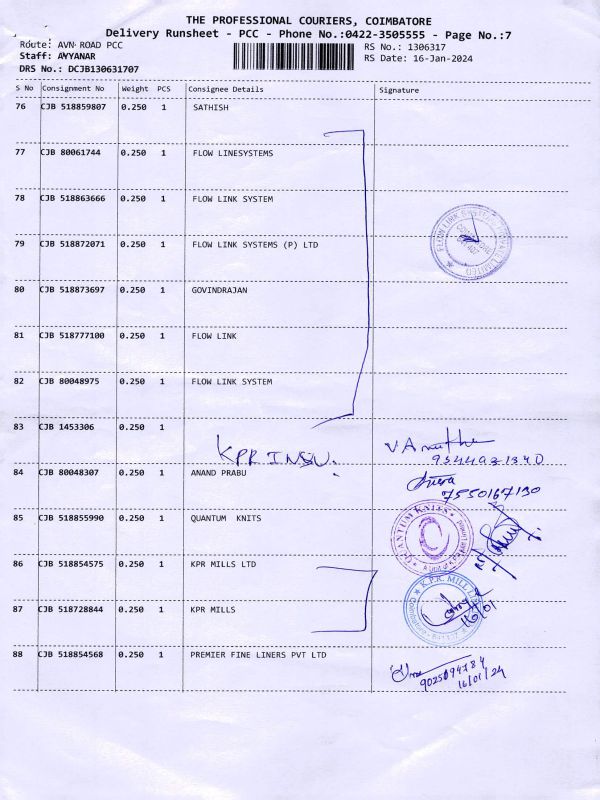 THE PROFESSIONAL COURIERS, COIMBATORE
Delivery Runsheet - PCC - Phone No.:0422-3505555 - Page No.:7
Route: AVN ROAD PCC
RS No.: 1306317
Staff: AYYANAR
RS Date: 16-Jan-2024
DRS No.: DCJB130631707
S No Consignment No Weight PCS Consignee Details Signature
76 CJB 518859807 0.250 1 SATHISH
77 CJB 80061744 0.250 1 FLOW LINESYSTEMS
78 CJB 518863666 0.250 1 FLOW LINK SYSTEM
79 CJB 518872071 0.250 1 FLOW LINK SYSTEMS (P) LTD
80 CJB 518873697 0.250 1 GOVINDRAJAN
81 CJB 518777100 0.250 1 FLOW LINK
82 CJB 80048975 0.250 1 FLOW LINK SYSTEM
83 CJB 1453306 0.250 1
KPR INSU.
84 CJB 80048307 0.250 1 ANAND PRABU
7550167130
85 CJB 518855990 0.250 1 QUANTUM KNITS
QUANTUM KNITS
86 CJB 518854575 0.250 1 KPR MILLS LTD
K.P.R. MILL
87 CJB 518728844 0.250 1 KPR MILLS
16/01
88 CJB 518854568 0.250 1 PREMIER FINE LINERS PVT LTD
9025094784
16/01/24